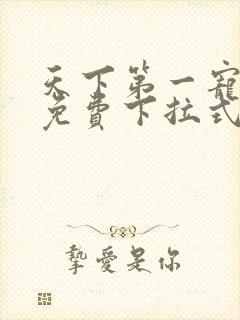 天下第一寵
免費下拉式
摯愛是你